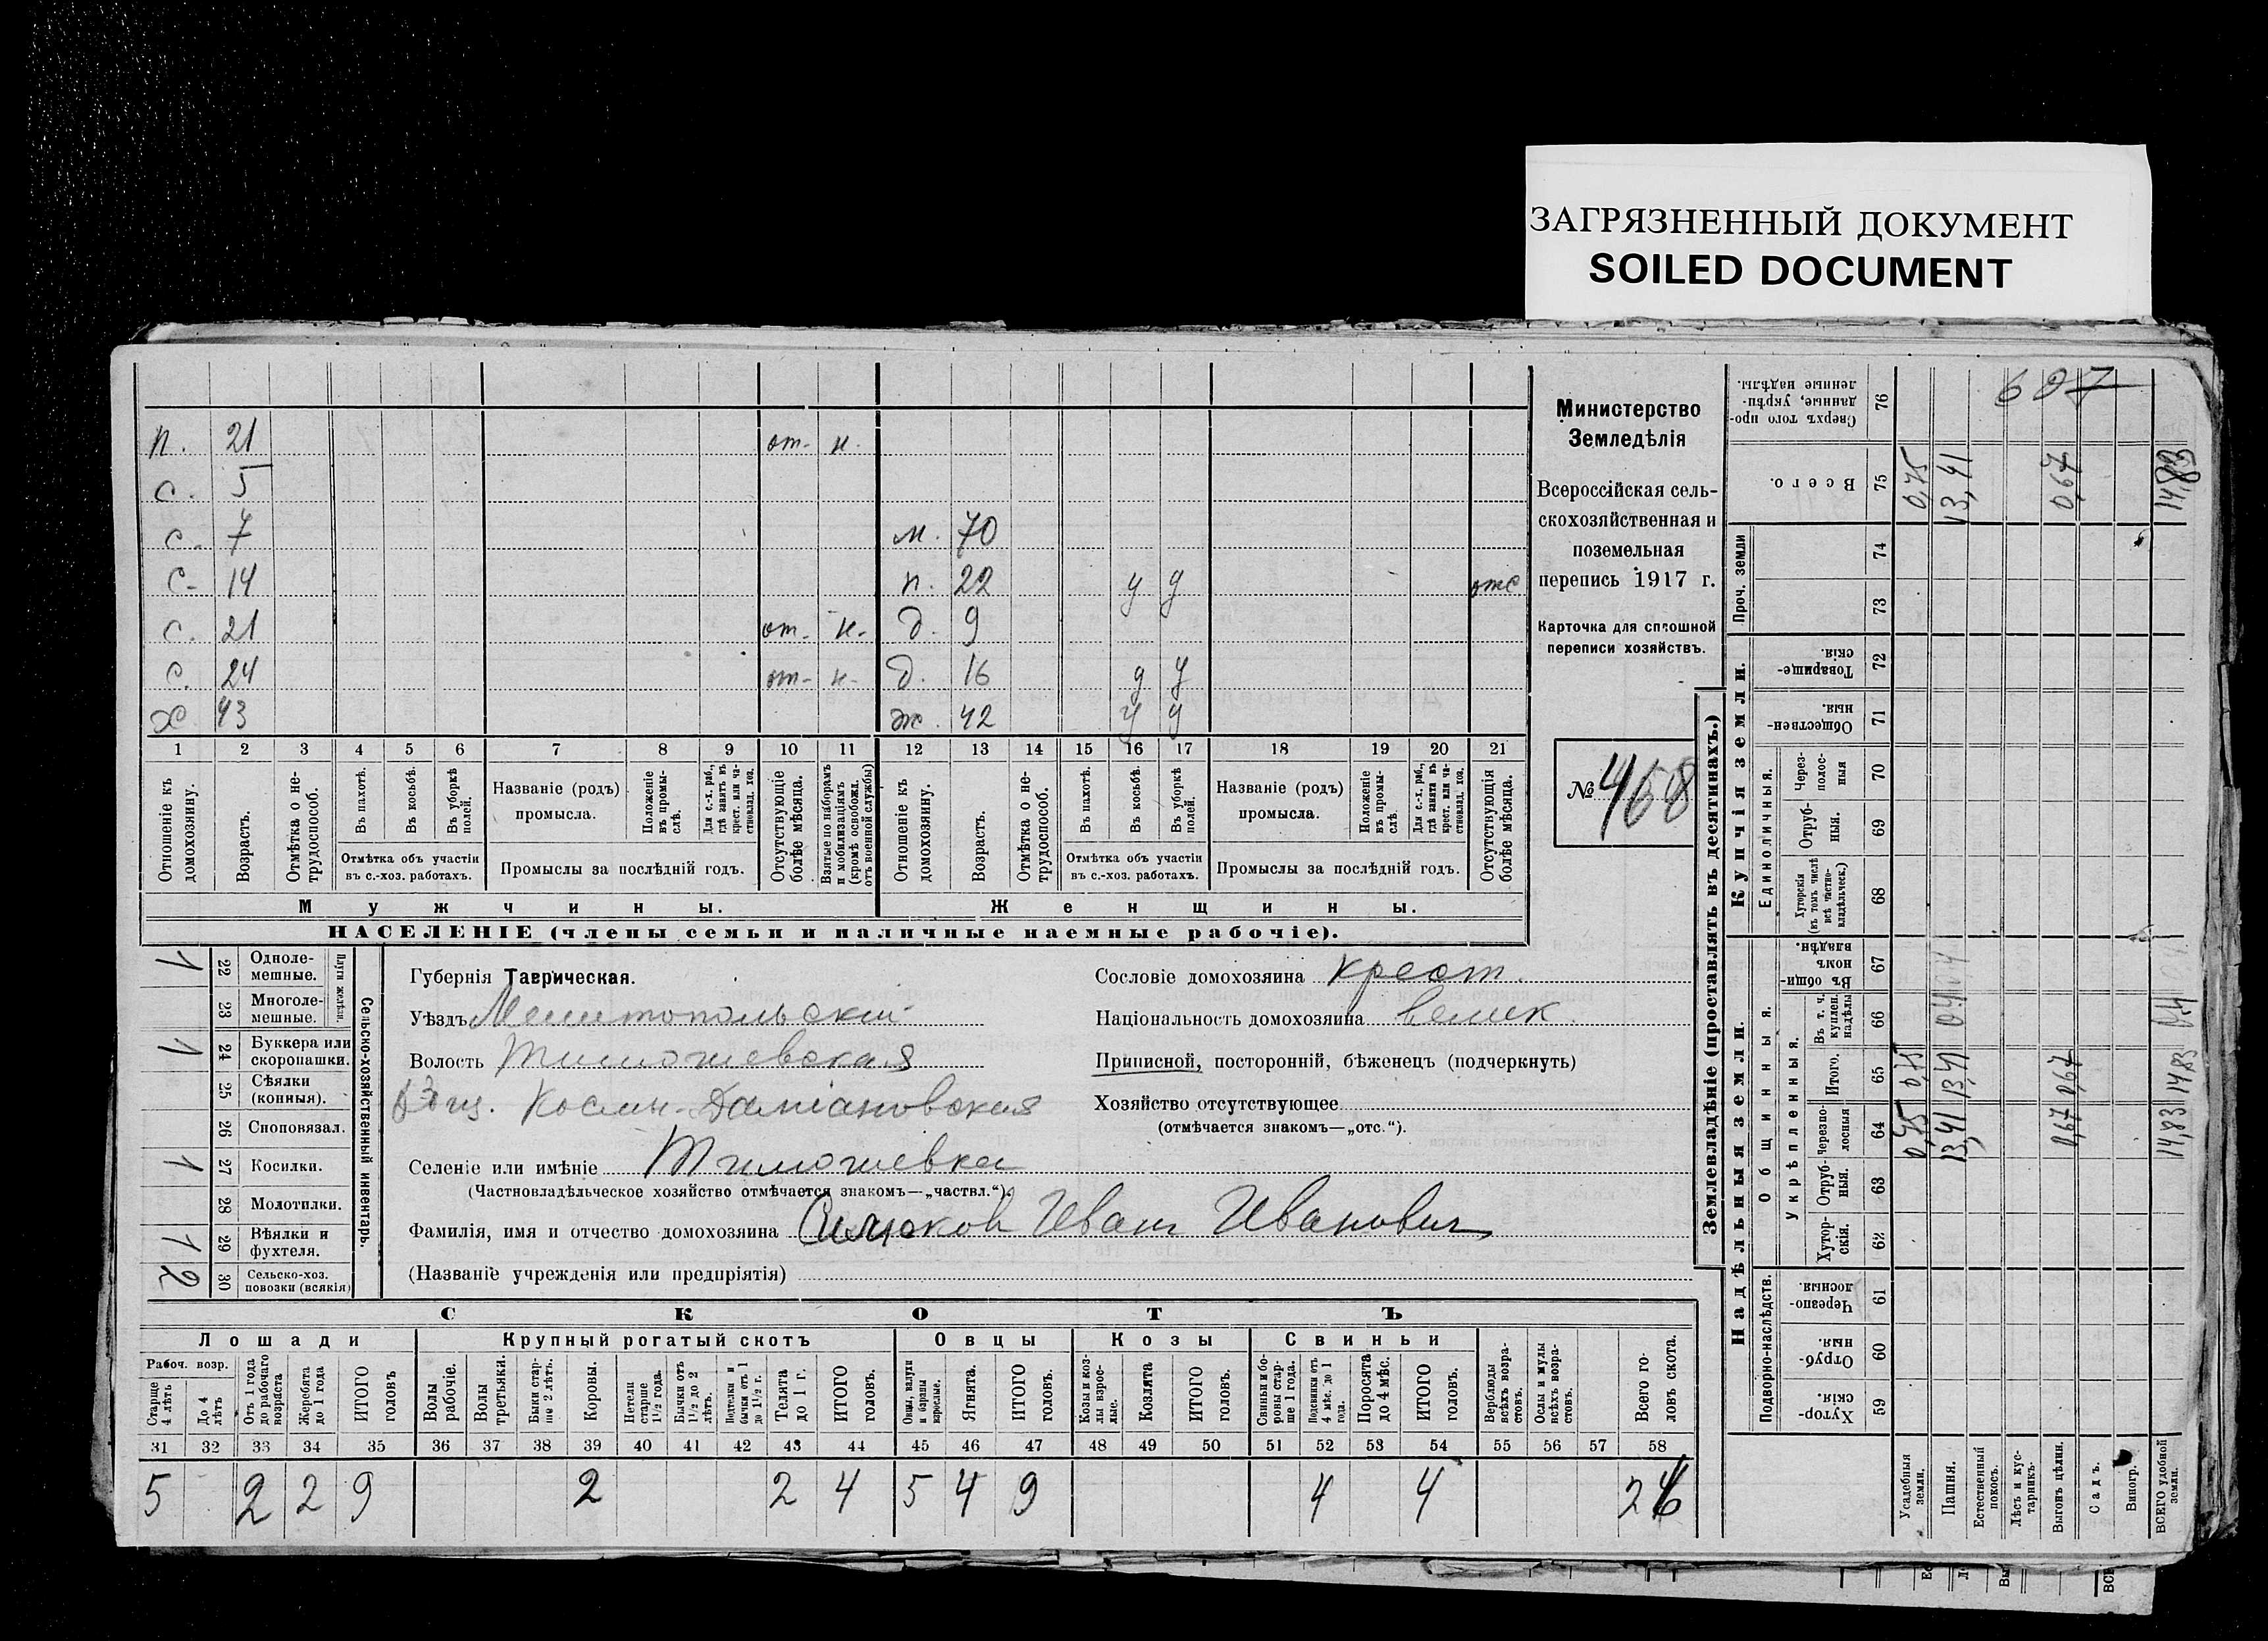 ЗАГРЯЗНЕННЫЙ ДОКУМЕНТ
SOILED DOCUMENT
Министерство
Земледѣлія
Всероссійская сель-
скохозяйственная и
поземельная
перепись 1917 г.
Карточка для сплошной
переписи хозяйствъ.
№ 468
п. 21 от- н.
с. 5
с. 7 м. 70
с- 14 п. 22 у у отс
с. 21 от- н- д. 9
с. 24 от- н- д. 16 у у
х 43 ж. 42 у у
1 2 3 4 5 6 7 8 9 10 11 12 13 14 15 16 17 18 19 20 21
Отношеніе къ домохозяину.
Возрастъ.
Отмѣтка о не-трудоспособ.
Въ пахотѣ.
Въ косьбѣ.
Въ уборкѣ полей.
Названіе (родъ) промысла.
Положеніе въ промы-слѣ.
Для с.-х. раб., гдѣ занятъ въ крест. или ча-стновлад. хоз.
Отсутствующіе болѣе мѣсяца.
Взятые по наборамъ и мобилизаціямъ (кромѣ освобожд. отъ военной службы)
Отношеніе къ домохозяину.
Возрастъ.
Отмѣтка о не-трудоспособ.
Въ пахотѣ.
Въ косьбѣ.
Въ уборкѣ полей.
Названіе (родъ) промысла.
Положеніе въ промы-слѣ.
Для с.-х. раб., гдѣ занята въ крест. или ча-стновлад. хоз.
Отсутствующія болѣе мѣсяца.
Отмѣтка объ участіи въ с.-хоз. работахъ.
Промыслы за послѣдній годъ.
Отмѣтка объ участіи въ с.-хоз. работахъ.
Промыслы за послѣдній годъ.
Мужчины. Женщины.
НАСЕЛЕНІЕ (члены семьи и наличные наемные рабочіе).
Сельско-хозяйственный инвентарь.
Плуги желѣзн.
1 22 Одноле-мешные.
23 Многоле-мешные.
1 24 Буккера или скоропашки.
25 Сѣялки (конныя).
26 Сноповязал.
1 27 Косилки.
28 Молотилки.
1 29 Вѣялки и фухтеля.
2 30 Сельско-хоз. повозки (всякія)
Губернія Таврическая.
Уѣздъ Мелитопольскій
Волость Тимошевская
Общ. Косьмо-Даміановская
Селеніе или имѣніе Тимошевка
(Частновладѣльческое хозяйство отмѣчается знакомъ—„частвл.“).
Фамилія, имя и отчество домохозяина Иванъ Ивановичъ
(Названіе учрежденія или предпріятія)
Сословіе домохозяина крест.
Національность домохозяина велик.
Приписной, посторонній, бѣженецъ (подчеркнуть)
Хозяйство отсутствующее
(отмѣчается знакомъ—„отс.“).
СКОТЪ
Лошади Крупный рогатый скотъ Овцы Козы Свиньи
Рабоч. возр.
Старше 4 лѣтъ
До 4 лѣтъ
Отъ 1 года до рабочаго возраста
Жеребята до 1 года
ИТОГО головъ
Волы рабочіе.
Волы третьяки.
Быки стар-ше 2 лѣтъ.
Коровы.
Нетели старше 1½ года.
Бычки отъ 1½ до 2 лѣтъ.
Подтелки и бычки отъ 1 до 1½ г.
Телята до 1 г.
ИТОГО головъ.
Овцы, валухи и бараны взрослые.
Ягнята.
ИТОГО головъ.
Козы и коз-лы взрос-лые.
Козлята
ИТОГО головъ.
Свиньи и бо-ровы стар-ше 1 года.
Подсвинки отъ 4 мѣс. до 1 года.
Поросята до 4 мѣс.
ИТОГО головъ.
Верблюды всѣхъ возра-стовъ.
Ослы и мулы всѣхъ возра-стовъ.
Всего го-ловъ скота.
31 32 33 34 35 36 37 38 39 40 41 42 43 44 45 46 47 48 49 50 51 52 53 54 55 56 57 58
5 2 2 9 2 2 4 5 4 9 4 4 26
Землевладѣніе (проставлять въ десятинахъ.)
Надѣльныя земли. Купчія земли. Проч. земли
Подворно-наслѣдств. Общинныя. Укрѣпленныя. Единоличныя.
Сверхъ того про-данные, укрѣп-ленные надѣлы. 76 607
Всего. 75 0,75 13,41 0,67 14,83
74
73
Товарище-скія. 72
Обществен-ныя. 71
Через-полос-ныя 70
Отруб-ныя. 69
Хуторскія (въ томъ числѣ всѣ частно-владѣльческ.) 68
Въ общи-номъ владѣн. 67
Въ т. ч. куплен. надѣлы 66
Итого. 65 0,75 13,41 0,67 14,83
Черезпо-лосныя 64 0,75 13,41 0,67 14,83
Отруб-ныя. 63
Хутор-скія. 62
Черезпо-лосныя. 61
Отруб-ныя. 60
Хутор-скія. 59
Усадебныя земли.
Пашня.
Естественный покосъ.
Лѣсъ и кус-тарникъ.
Выгонъ цѣлин.
Садъ.
Виногр.
ВСЕГО удобной земли.